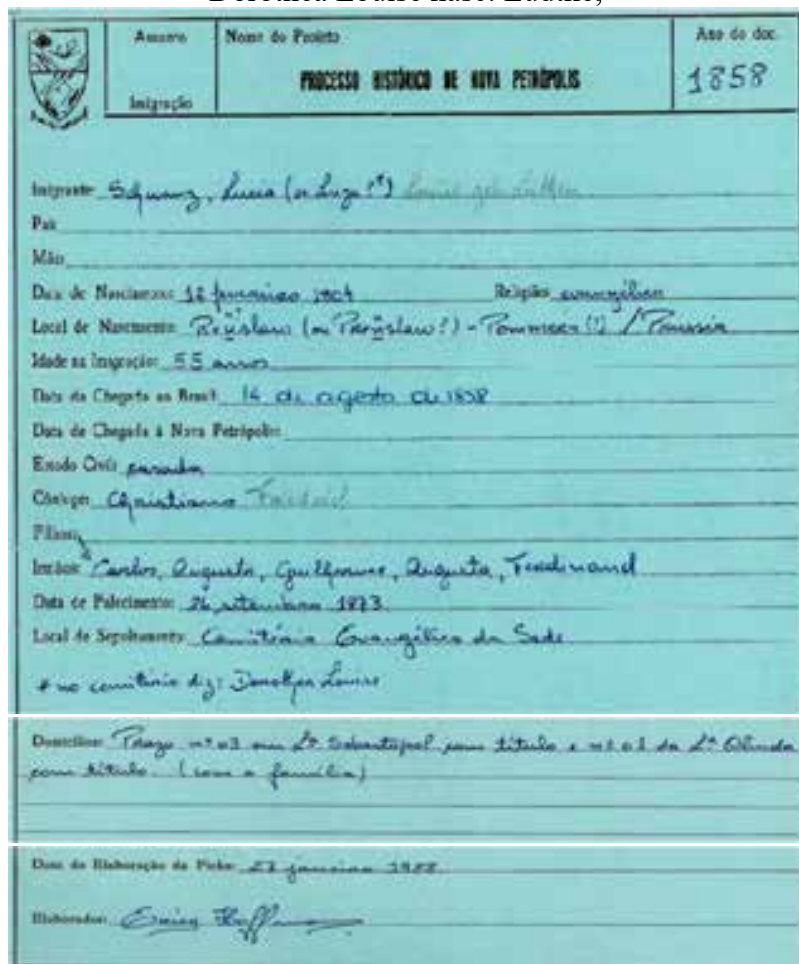 Assunto
Imigração
Nome do Projeto
PROCESSO HISTÓRICO DE NOVA PETRÓPOLIS
Ano do doc.
1858
Imigrante: Schwarz, Lucia (ou Luza!?) Louise geb.
Pai
Mãe
Data de Nascimento: 12 fevereiro 1804 Religião: evangélica
Local de Nascimento: (ou !) - Pommern (!) / Prussia
Idade na Imigração: 55 anos
Data da Chegada ao Brasil: 14 de agosto de 1858
Data de Chegada à Nova Petrópolis:
Estado Civil: casada
Cônjuge: Christiano Friedrich
Filiação
Irmãos: Carlos, Augusto, Guilherme, Augusta, Ferdinand
Data de Falecimento: 26 setembro 1873
Local de Sepultamento: Cemitério Evangélico da Sede
* no cemitério diz: Dorothea Louise
Domicílio: Prazo nº 03 em Lª Sebastopol com título e nº 01 da Lª Olinda
com título. (com a família)
Data da Elaboração da Ficha: 27 janeiro 1988
Elaborador: